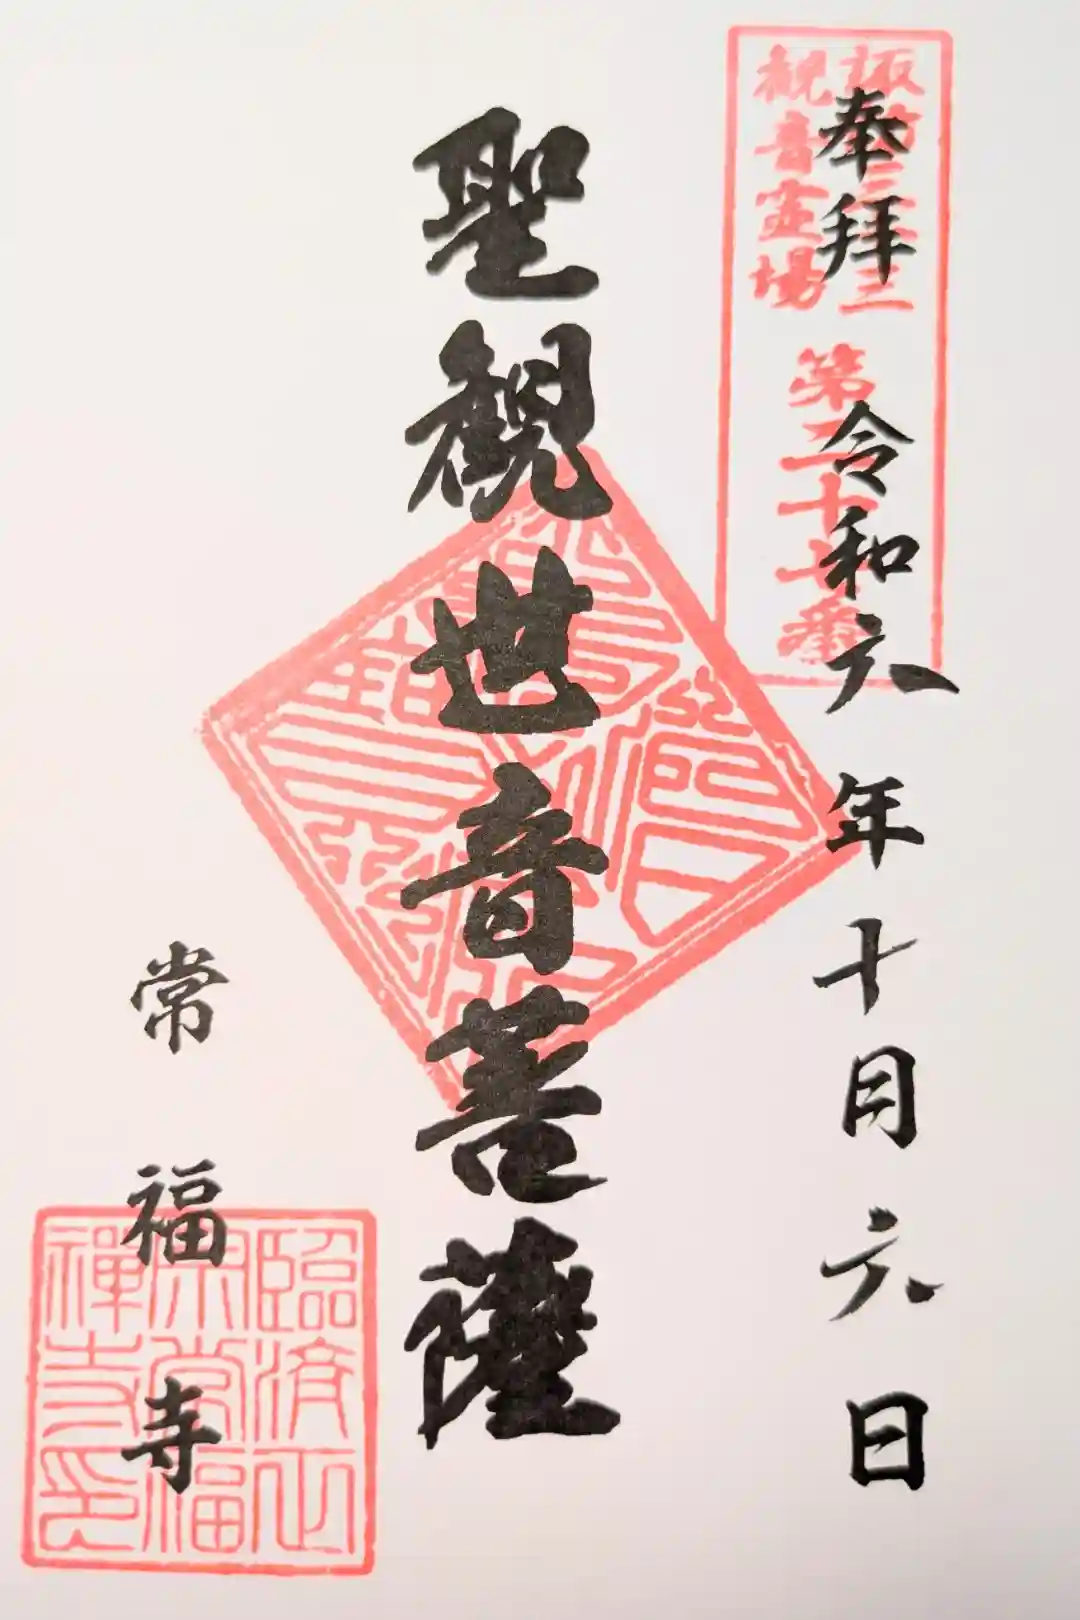 奉拝 令和六年十月六日
諏訪三十三
観音霊場
第二十七番
聖観世音菩薩
常福寺
臨済正
宗常福
禅寺印